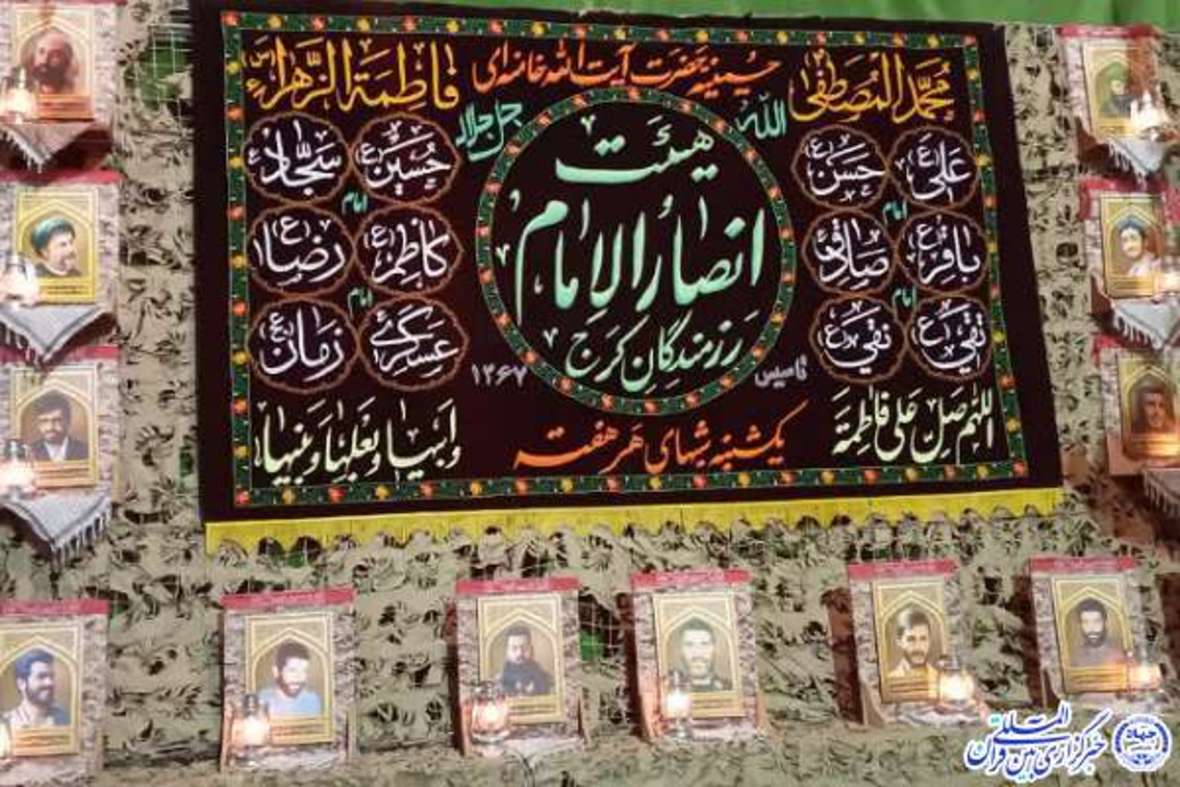 محمد المصطفی
حسینیه حضرت آیت الله خامنه ای
فاطمة الزهراء (س)
الله
جل جلاله
علی (ع)
حسن (ع)
حسین (ع)
سجاد ع
امام
امام
باقر (ع)
صادق ع
کاظم (ع)
رضا (ع)
امام
امام
تقی (ع)
نقی (ع)
عسکری ع
زمان (عج)
هیئت
انصار الامام
رزمندگان کرج
تاسیس
۱۳۶۷
اللهم صل علی فاطمة
و ابیها و بعلها و بنیها
یکشنبه شبهای هر هفته
خبرگزاری بین المللی قرآن
جهاد